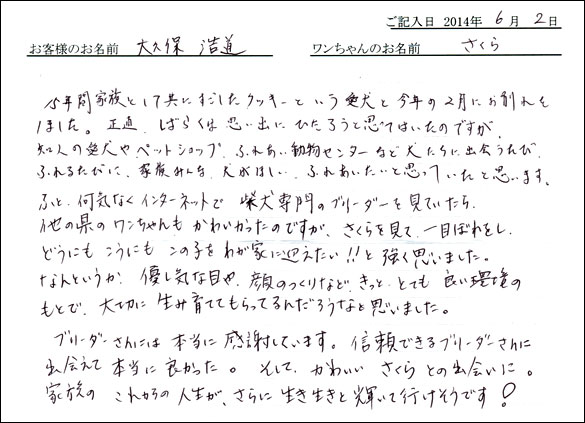 ご記入日 2014年 6月 2日
お客様のお名前 大久保 浩道 ワンちゃんのお名前 さくら
15年間家族として共にすごしたクッキーという愛犬と今年の2月にお別れを
しました。正直、しばらくは思い出にひたろうと思ってはいたのですが、
知人の愛犬やペットショップ、ふれあい動物センターなど犬たちに出会うたび、
ふれるたびに、家族みんな、犬がほしい、ふれあいたいと思っていたと思います。
ふと、何気なくインターネットで 柴犬専門のブリーダーを見ていたら、
他の県のワンちゃんもかわいかったのですが、さくらを見て、一目ぼれをし、
どうにもこうにもこの子をわが家に迎えたい!!と強く思いました。
なんというか、優し気な目や、顔のつくりなど、きっと、とても良い環境の
もとで、大切に生み育ててもらってるんだろうなと思いました。
ブリーダーさんには本当に感謝しています。信頼できるブリーダーさんに
出会えて本当に良かった。そして、かわいいさくらとの出会いに。
家族のこれからの人生が、さらに生き生きと輝いて行けそうです!